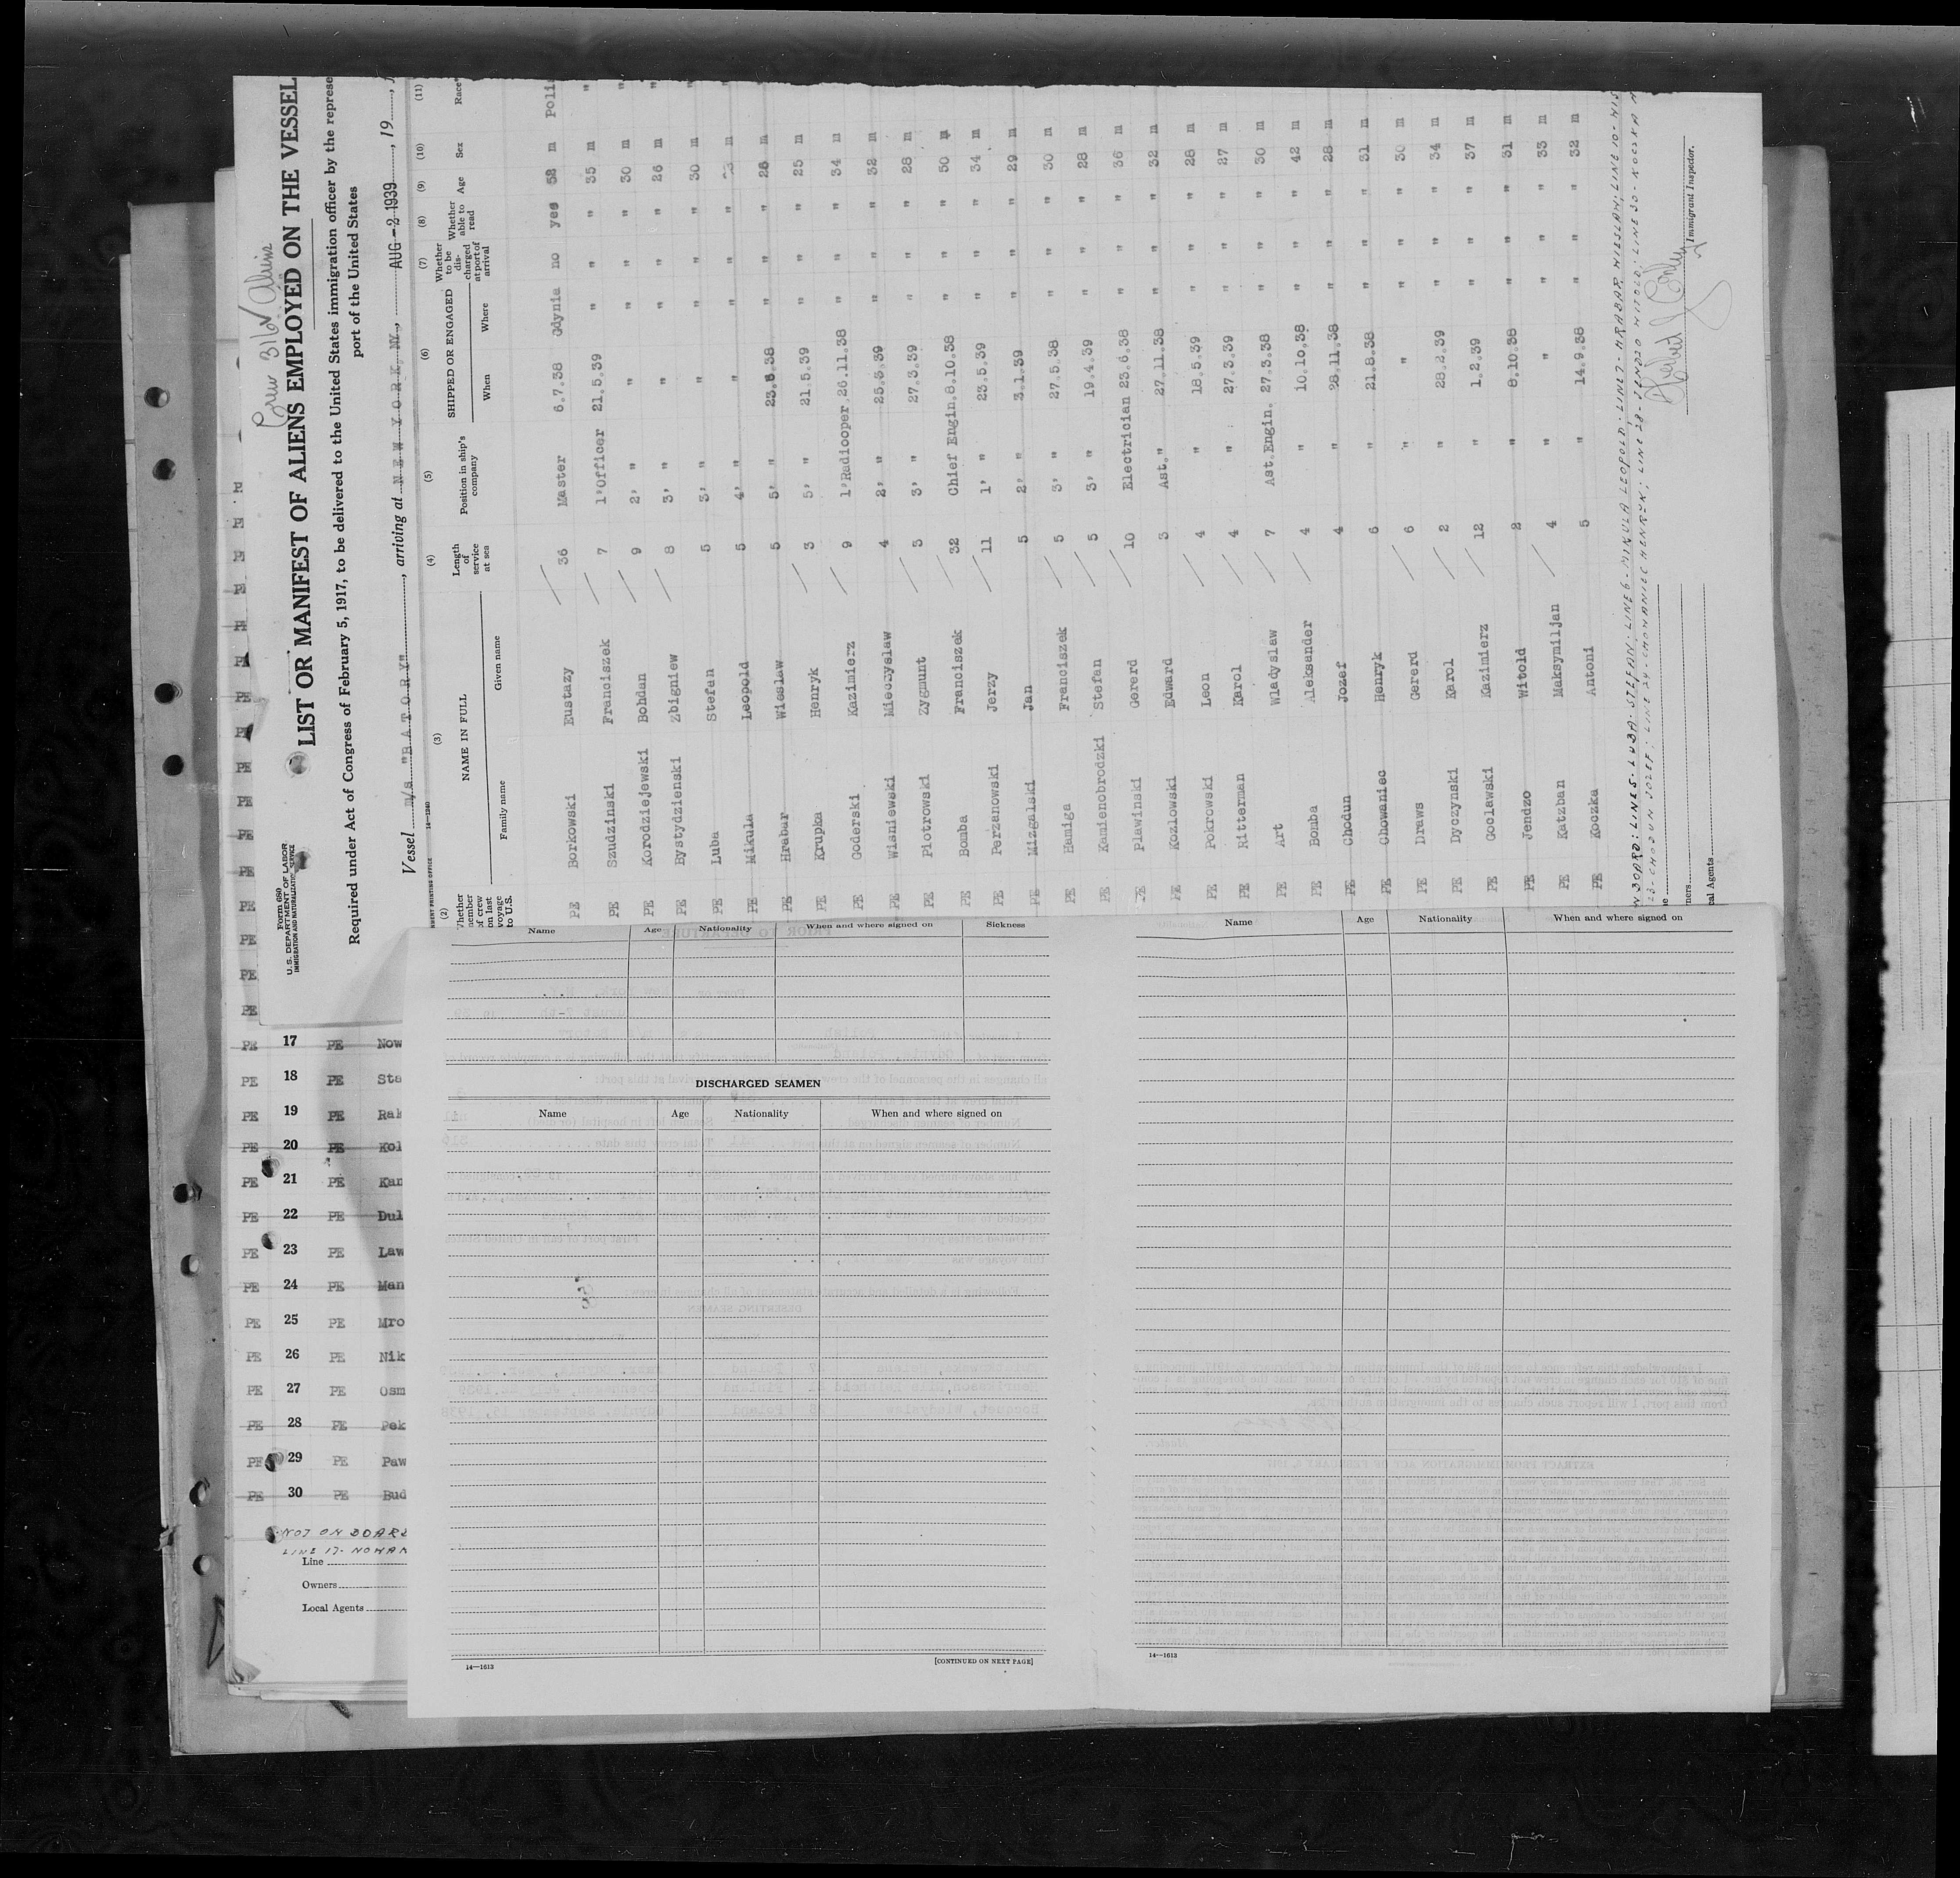 Crew 316 Aliens
Form 680
U.S. DEPARTMENT OF LABOR
IMMIGRATION AND NATURALIZATION SERVICE
LIST OR MANIFEST OF ALIENS EMPLOYED ON THE VESSEL
Required under Act of Congress of February 5, 1917, to be delivered to the United States immigration officer by the represe
port of the United States
Vessel m/s "BATORY", arriving at NEW YORK NY, AUG -2 1939, 19
14—1240
MENT PRINTING OFFICE
(2) (3) (4) (5) (6) (7) (8) (9) (10) (11)
Whether member of crew on last voyage to U.S. NAME IN FULL Family name Given name Length of service at sea Position in ship's company SHIPPED OR ENGAGED When Where Whether to be discharged at port of arrival Whether able to read Age Sex Race
PE Borkowski Eustazy 36 Master 6.7.38 Gdynia no yes 52 m Poli
PE Szudzinski Franciszek 7 1'Officer 21.5.39 " " " 35 m "
PE Korodziejewski Bohdan 9 2' " " " " " 30 m "
PE Bystydzienski Zbigniew 8 3' " " " " " 26 m "
PE Luba Stefan 5 3' " " " " " 30 m "
PE Mikula Leopold 5 4' " " " " " m "
PE Hrabar Wieslaw 5 5' " 23.8.38 " " " 26 m
PE Krupka Henryk 3 5' " 21.5.39 " " " 25 m
PE Goderski Kazimierz 9 1'Radiooper. 26.11.38 " " " 34 m
PE Wisniewski Mieczyslaw 4 2' " 25.3.39 " " " 32 m
PE Piotrowski Zygmunt 3 3' " 27.3.39 " " " 28 m
PE Bomba Franciszek 32 Chief Engin. 8.10.38 " " " 50 m
PE Perzanowski Jerzy 11 1' " 23.5.39 " " " 34 m
PE Mizgalski Jan 5 2' " 3.1.39 " " " 29 m
PE Hamiga Franciszek 5 3' " 27.5.38 " " " 30 m
PE Kamienobrodzki Stefan 5 3' " 19.4.39 " " " 28 m
PE Plawinski Gererd 10 Electrician 23.6.38 " " " 36 m
PE Kozlowski Edward 3 Ast. " 27.11.38 " " " 32 m
PE Pokrowski Leon 4 " 18.5.39 " " " 28 m
PE Ritterman Karol 4 " 27.3.39 " " " 27 m
PE Art Wladyslaw 7 Ast.Engin. 27.3.38 " " " 30 m
PE Bomba Aleksander 4 " 10.10.38 " " " 42 m
PE Chodun Jozef 4 " 28.11.38 " " " 28 m
PE Chowaniec Henryk 6 " 21.8.38 " " " 31 m
PE Draws Gererd 6 " " " " " 30 m
PE Dyczynski Karol 2 " 28.2.39 " " " 34 m
PE Goclawski Kazimierz 12 " 1.2.39 " " " 37 m
PE Jendzo Witold 2 " 8.10.38 " " " 31 m
PE Katzban Maksymiljan 4 " " " " " 33 m
PE Koczka Antoni 5 " 14.9.38 " " " 32 m
N BOARD: LINE 5- LUBA STEFAN; LINE 6- MIKULA LEOPOLD; LINE 7- HRABAR WIESLAW; LINE 10- WIS
23- CHODUN JOZEF; LINE 24- CHOWANIEC HENRYK; LINE 28- JENDZO WITOLD; LINE 30- KOCZKA A
Immigrant Inspector.
ners
cal Agents
PE 17 PE Now
PE 18 PE Sta
PE 19 PE Rak
PE 20 PE Kol
PE 21 PE Kan
PE 22 PE Dul
PE 23 PE Law
PE 24 PE Man
PE 25 PE Mro
PE 26 PE Nik
PE 27 PE Osm
PE 28 PE Pek
PE 29 PE Paw
PE 30 PE Bud
NOT ON BOARD
LINE 17- NOWAK
Line
Owners
Local Agents
Name Age Nationality When and where signed on Sickness
DISCHARGED SEAMEN
Name Age Nationality When and where signed on
14—1613
[CONTINUED ON NEXT PAGE]
Name Age Nationality When and where signed on
14—1613